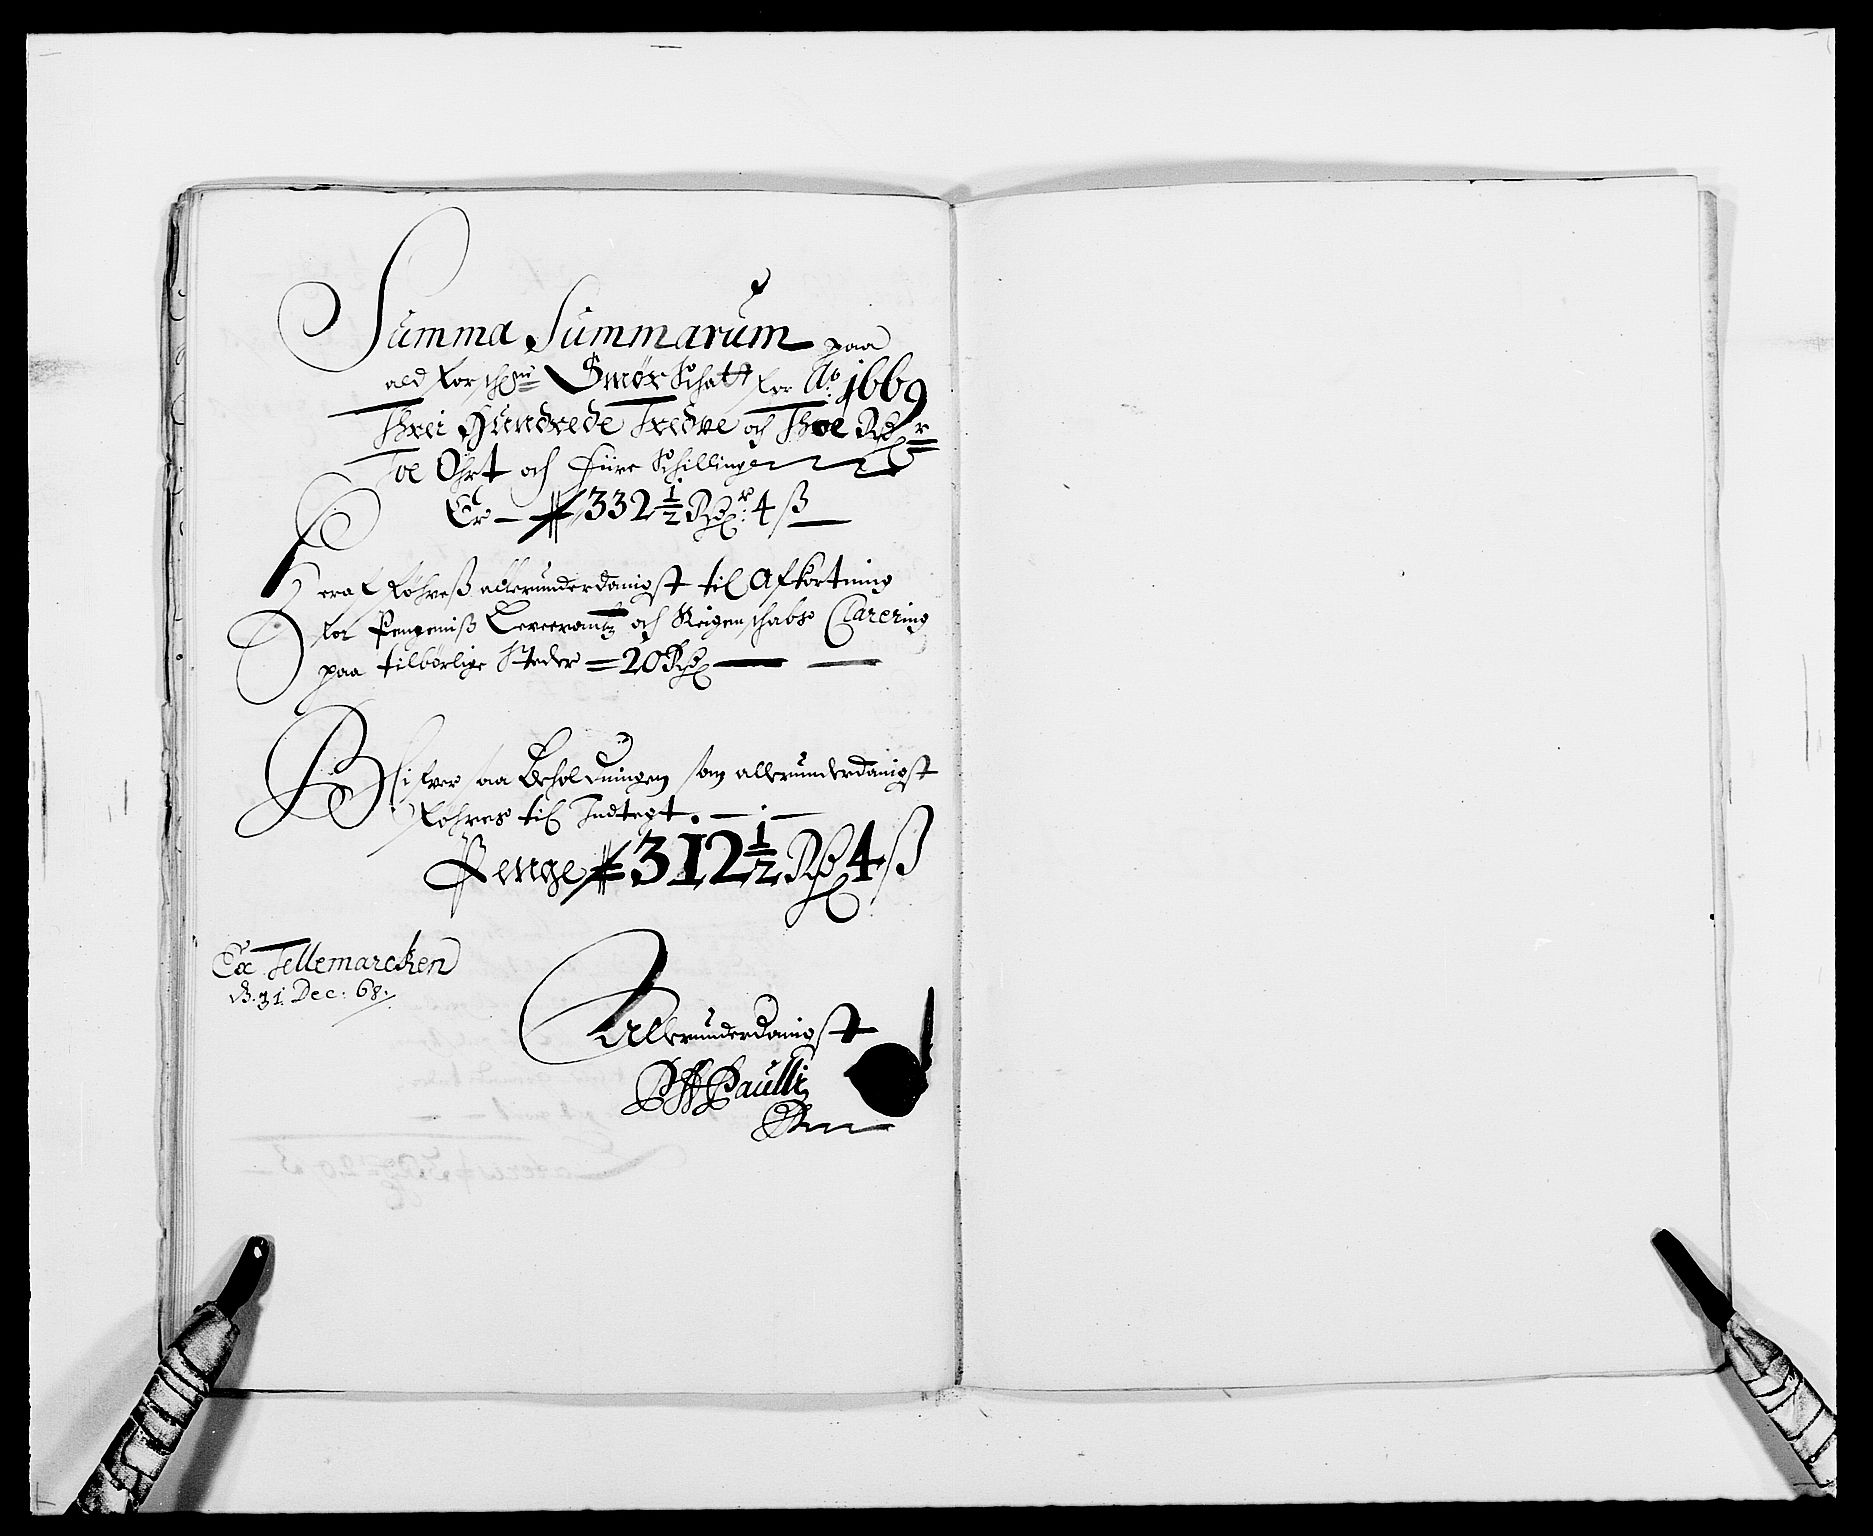 Summa Summarum paa
ald forschne Smör Schatt for Ao: 1669
Threi Hundrede Tredve och Thoe Rdr
Toe Ohrt och fiire Schillinge
Er — 332 1/2 Rdr: 4 ß —
Heraf föhreß allerunderdanigst til Afkortning
for Pengeniß Leverantz och Reigenschabs Clarering
paa tilbörlige Steder = 20 Rd — —
Blifver saa Beholdningen som allerunderdanigst
föhres til Indtegt. — —
Penge 312 1/2 Rd 4 ß
Ex Tellemarcken
d. 31. Dec: 68.
Allerunderdanigst
Paulli